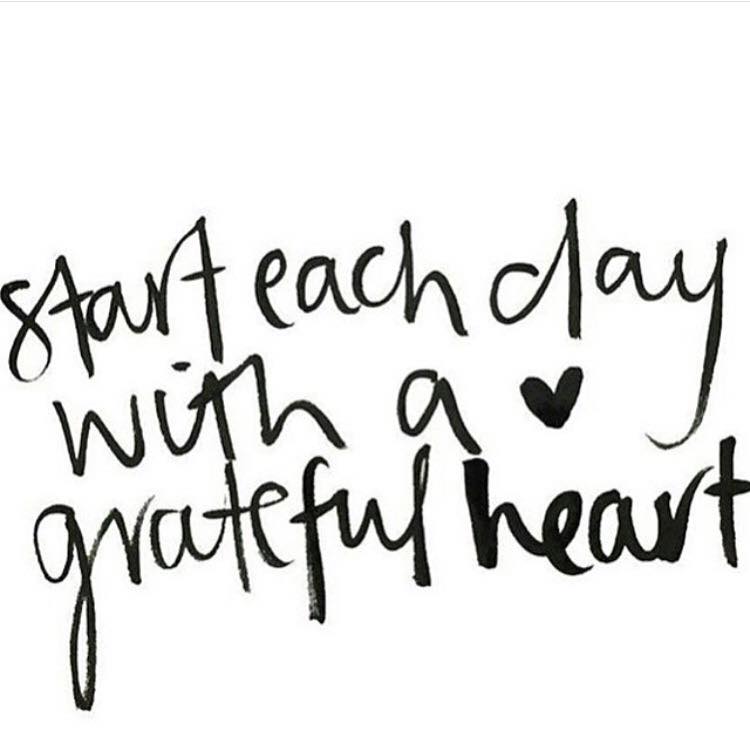 start each day
with a ♥
grateful heart